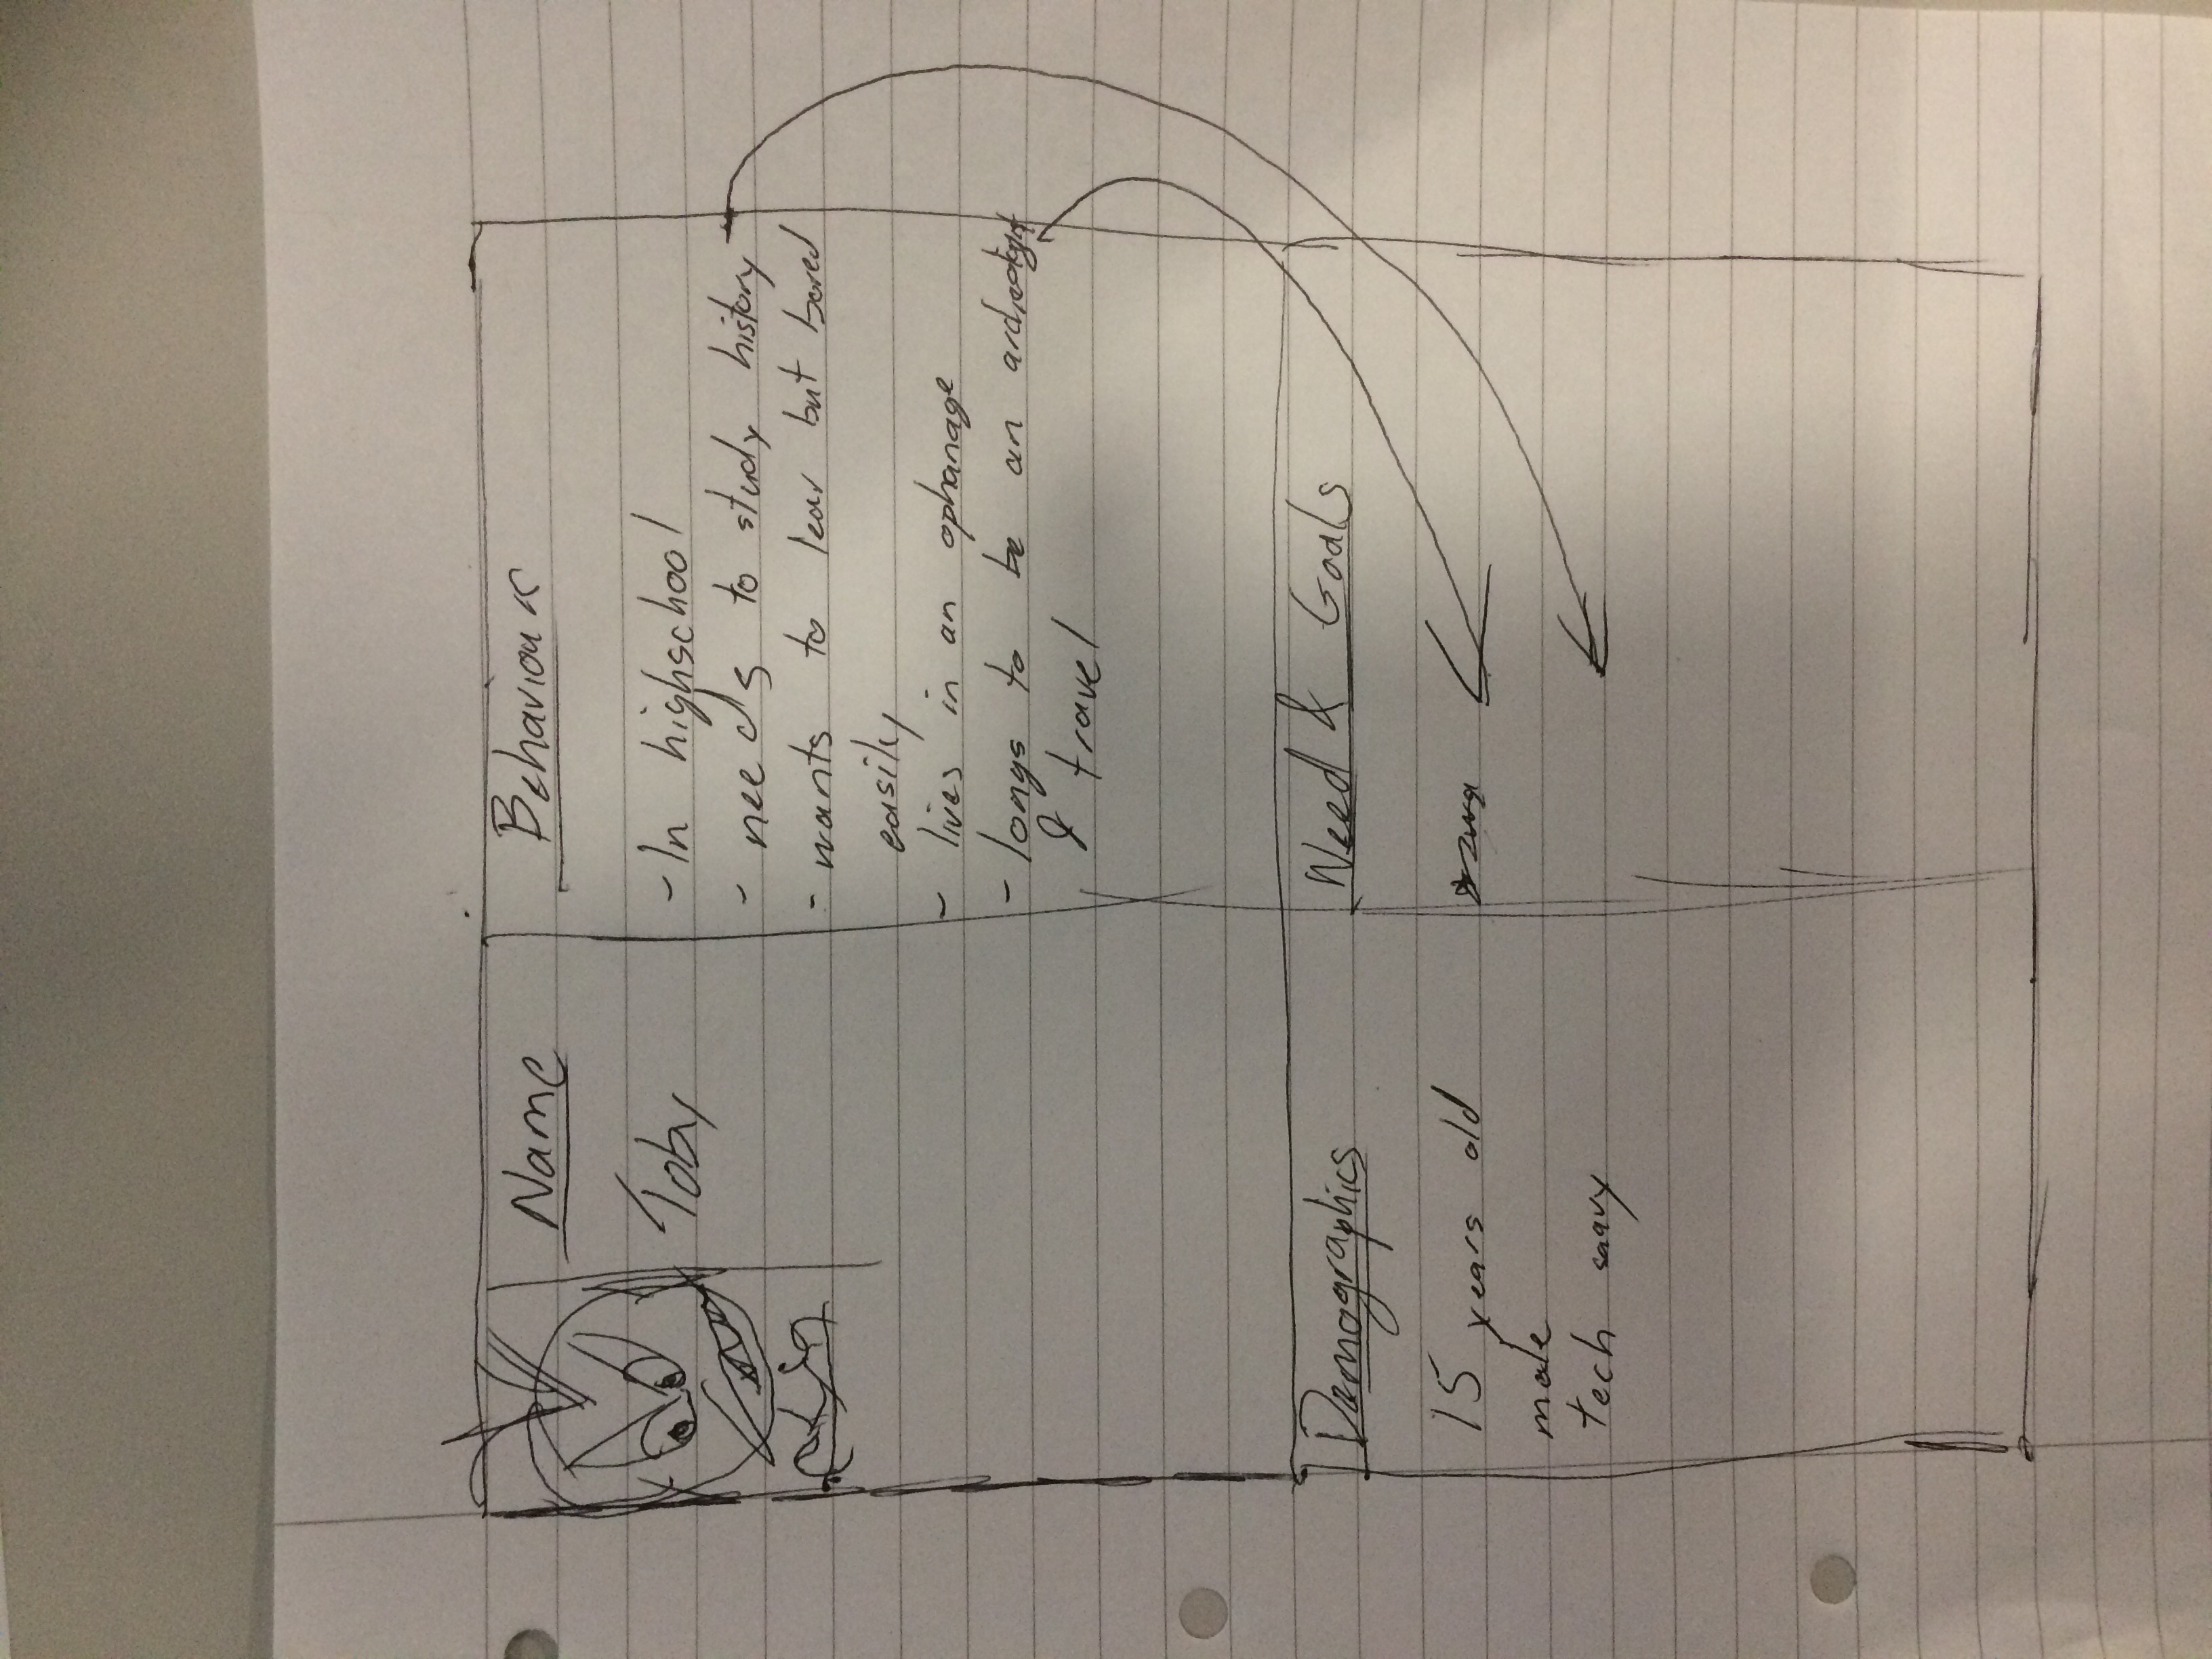 Name
Toby
Behaviour
- In highschool
- needs to study history
- wants to lear but bored
easily
- lives in an ophanage
- longs to be an
& travel
Demographics
15 years old
male
tech savy
Need & Goals